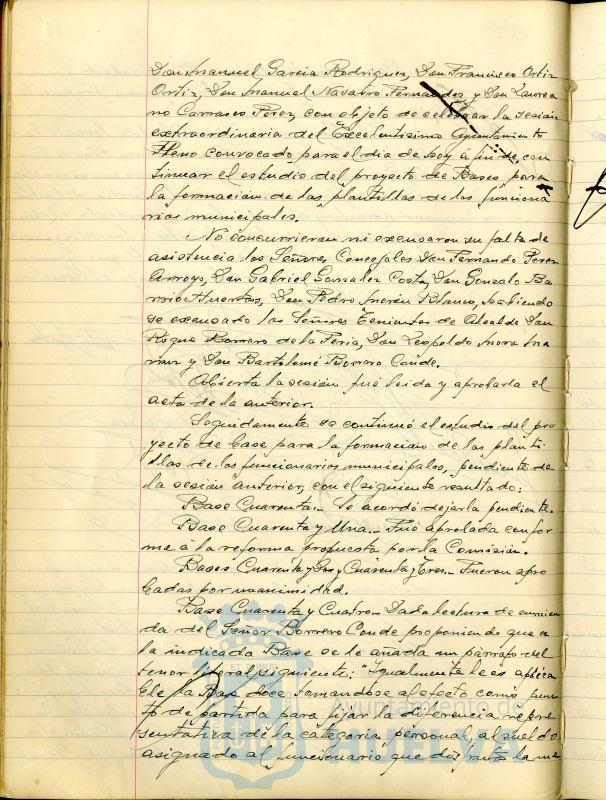 Don Manuel García Rodriguez, Don Francisco Ortiz
Ortiz, Don Manuel Navarro Fernandez y Don Laurea
no Carrasco Perez, con objeto de celebrar la sesión
extraordinaria del Excelentísimo Ayuntamiento
Pleno convocado para el día de hoy a fin de con
tinuar el estudio del proyecto de Bases para
la formación de las plantillas de los funciona
rios municipales.
No concurrieron ni excusaron su falta de
asistencia los Señores Concejales Don Fernando Perez
Arroyo, Don Gabriel Gonzalez Costa, Don Gonzalo Ba
rrio Huertas, Don Pedro Morán Blanco, habiendo
se excusado los Señores Tenientes de Alcalde Don
Roque Borrero de la Feria, Don Leopoldo Mora
y Don Bartolomé Borrero Conde.
Abierta la sesión fué leida y aprobada el
acta de la anterior.
Seguidamente se continuó el estudio del pro
yecto de base para la formación de las planti
llas de los funcionarios municipales, pendiente de
la sesión anterior, con el siguiente resultado:
Base Cuarenta.- Se acordó dejarla pendiente.
Base Cuarenta y Una.- Fué aprobada confor
me á la reforma propuesta por la Comisión.
Bases Cuarenta y Dos y Cuarenta y Tres.- Fueron apro
badas por unanimidad.
Base Cuarenta y Cuatro.- Dada lectura de enmien
da del Señor Borrero Conde proponiendo que a
la indicada Base se le añada un párrafo del
tenor literal siguiente: "Igualmente le es aplica
ble la Base doce tomandose al efecto como pun
to de partida para fijar la diferencia repre
sentativa de la categoría personal, al sueldo
asignado al funcionario que disfrute la me
Ayuntamiento de
HUELVA